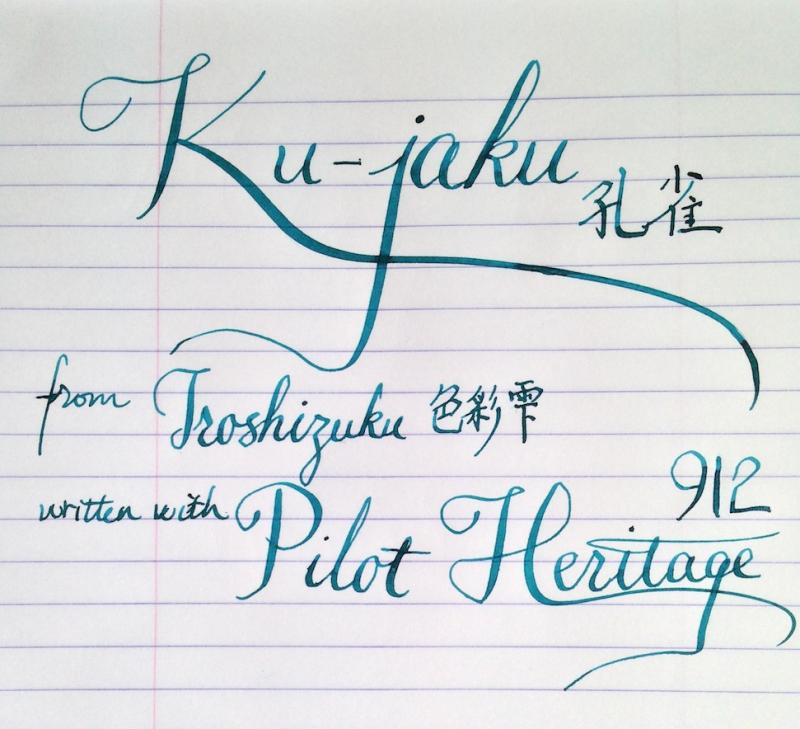 Ku-jaku 孔雀
from Iroshizuku 色彩雫
written with Pilot Heritage 912